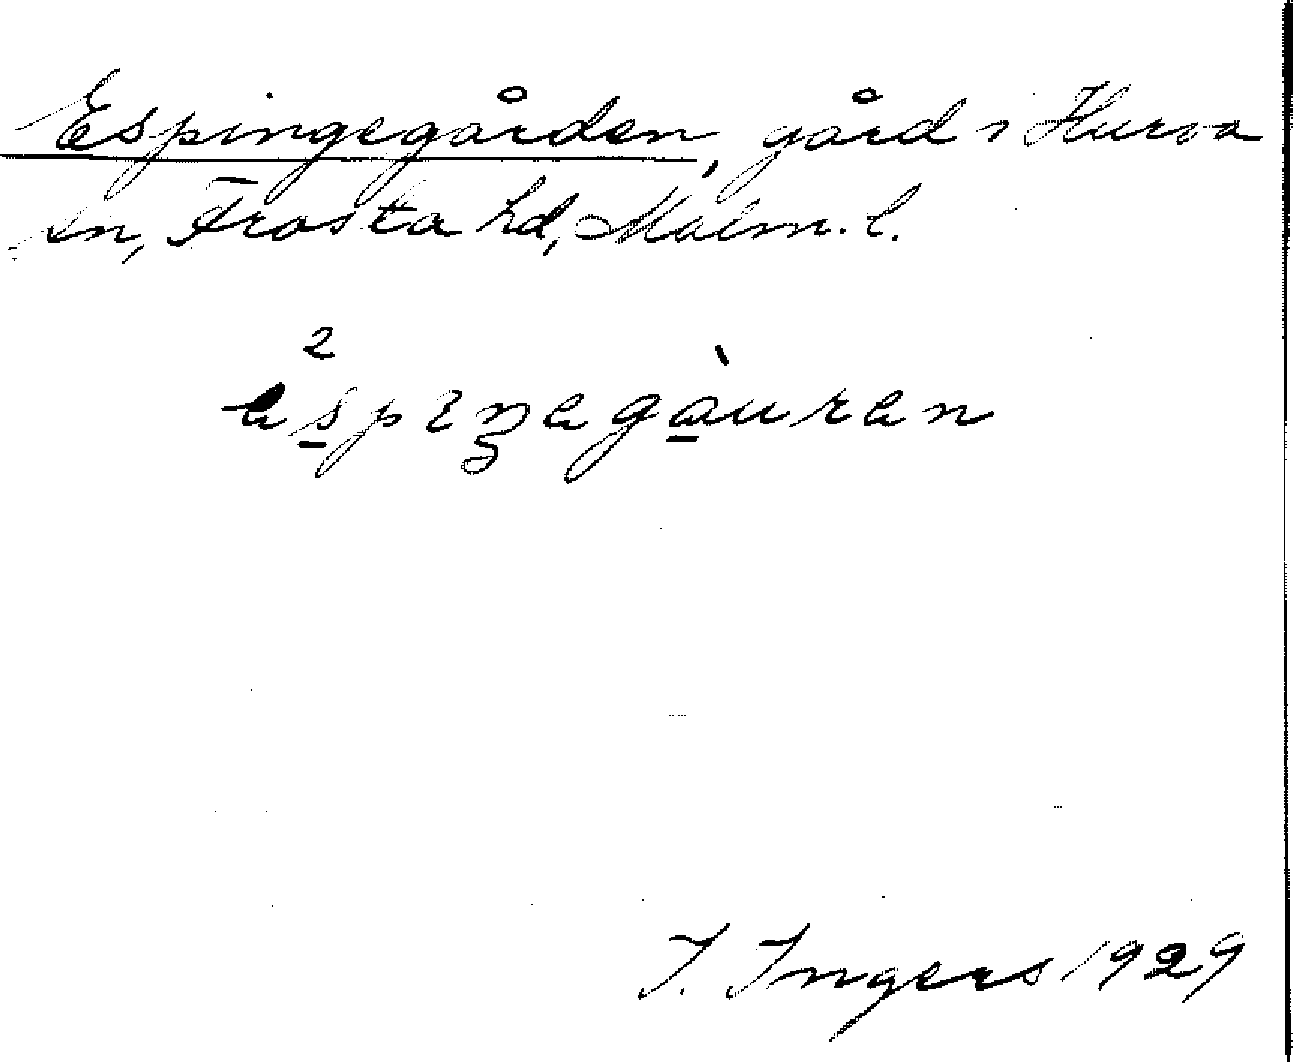 Espingegården, gård i Hurva
sn, Frosta hd, Malm. l.
I. Ingers 1929